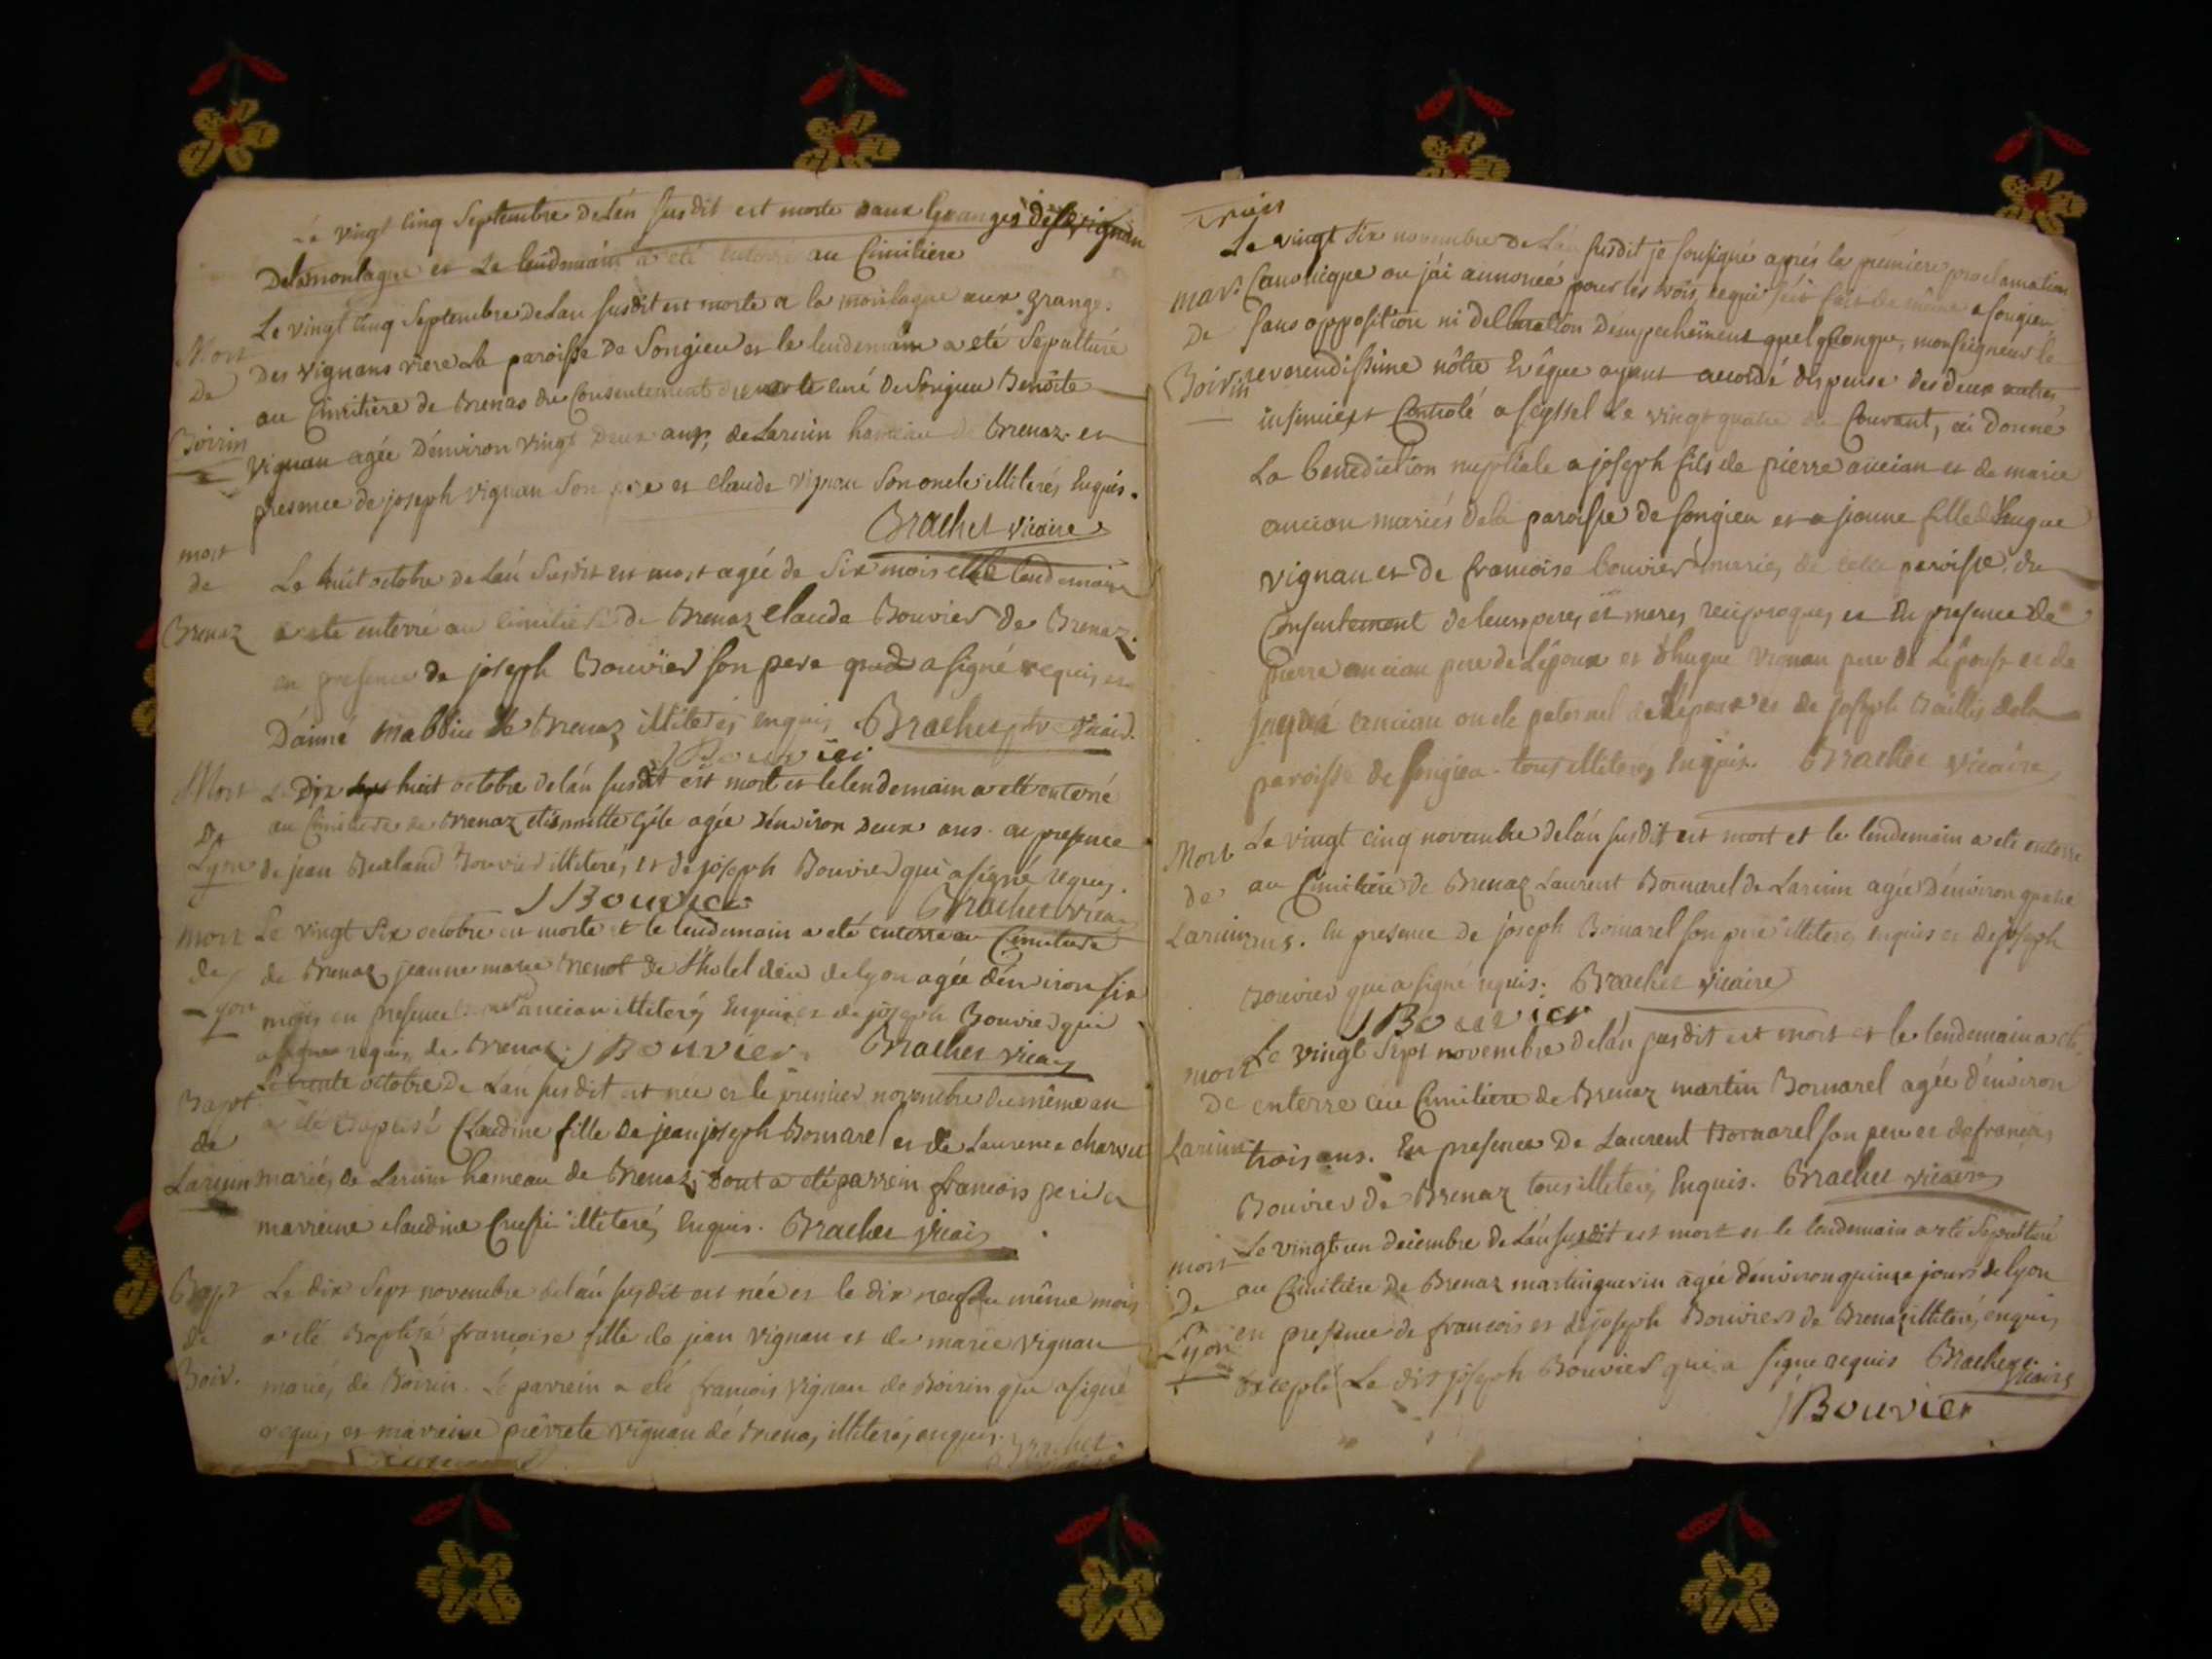 Le vingt cinq Septembre de lán susdit est morte aux Granges des vignan
de la montagne et Le lendemain a eté enterré au Cimitiere
Le vingt cinq Septembre de lan susdit est morte a la montagne aux grange
Mort
De
Boirin
Des vignans viere la paroisse De Songieu et le lendemain a eté Sepulturé
au Cimitière de Brenas du Consentement de curé de Songieu Benoite
vignan agée D'environ vingt Deux ans, de Laruin hameau de Brenaz. en
presence de joseph vignan Son pere et claude vignan Son oncle illiterés Enquis.
Brachet vicaire
mort
de
Brenaz
Le huit octobre de Lán Susdit est mort agée de Six mois et le lendemain
a ete enterré au cimitiere de Brenaz claude Bouvier De Brenaz.
en presence de joseph Bouvier son pere qui a signé requis, et
D'aimé de Brenaz illiterés enquis, Brachet vicair.
JBouvier
Mort
De
Lyon
Le Dix huit octobre de lán susdit est mort et le lendemain a eté enterré
au Cimitiere de Brenaz agée d'environ deux ans. en presence
de jean Bouvier illiterés, et de joseph Bouvier qui a signé requis.
JBouvier Brachet vica
mort
de
Lyon
Le vingt six octobre est morte et le lendemain a eté enterré au Cimitiere
de Brenaz, jeanne marie de l'hotel dieu de Lyon agée d'environ six
mois, en presence ancian illiterés Enquis et de joseph Bouvier qui
a signé requis, de Brenaz. JBouvier. Brachet vica
Bapt
de
Laruin
Le trente octobre de Lán susdit est née et le premier novembre du même an
a eté Baptisé Claudine fille de jean joseph Bornarel et de Laurence charvet
mariés, de Laruin hameau de Brenaz, dont a eté parrein francois et
marreine claudine illiterés, Enquis. Brachet vicai
Bapt
de
Boir.
Le dix Sept novembre de lán susdit est née et le dix neuf du même mois
a eté Baptisé francoise fille de jean vignan et de marie vignan
mariés, de Boirin. Le parrein a eté francois vignan de Boirin qui a signé
requis, et marreine pierrete vignan de Brenas, illiterés, enquis.
Brachet
Le vingt six novembre de Lán susdit je sousigné aprés la première proclamation
mar.
De
Boirin
Canonique ou j'ai annoncé pour les trois, a songieu
sans opposition ni d'empechement quelconque, monseigneur le
reverendissime nôtre Evêque ayant accordé dispense des deux autres,
et Controlé a seyssel Le vingt quatre du Courant, ai Donné
La benediction nuptiale a joseph fils de pierre ancian et de marie
ancian mariés de la paroisse de songieu et a fille d'hugue
vignan et de francoise bouvier mariés, de cette paroisse, du
Consentement de leurs peres, et meres, reciproques, et En presence de
pierre ancian pere de L'époux et d'hugue vignan pere de L'épouse et de
ancian oncle paternel de l'époux et de joseph de la
paroisse de songieu. tous illiterés, Enquis. Brachet vicaire
Mort
de
Laruin
Le vingt cinq novembre de lán susdit est mort et le lendemain a eté enterré
au Cimitiere de Brenaz Laurent Bornarel de Laruin agée d'environ quatre
ans. En presence de joseph Bornarel son pere illiterés, enquis et de joseph
Bouvier qui a signé requis. Brachet vicaire
JBouvier
mort
De
Laruin
Le vingt Sept novembre de lán susdit est mort et le lendemain a eté
enterré au Cimitiere de Brenaz martin Bornarel agée d'environ
trois ans. En presence De Laurent Bornarel son pere et de francois,
Bouvier de Brenaz tous illiterés, Enquis. Brachet vicaire
mort
De
Lyon
Le vingt un decembre de Lán susdit est mort et le lendemain a eté Sepulturé
au Cimitiere de Brenaz martin guerin agée d'environ quinze jours de lyon
en presence de francois et de joseph Bouviers de Brenaz illiterés, enquis,
Excepté Le dit joseph Bouvier qui a signe requis Brachet vicaire
JBouvier